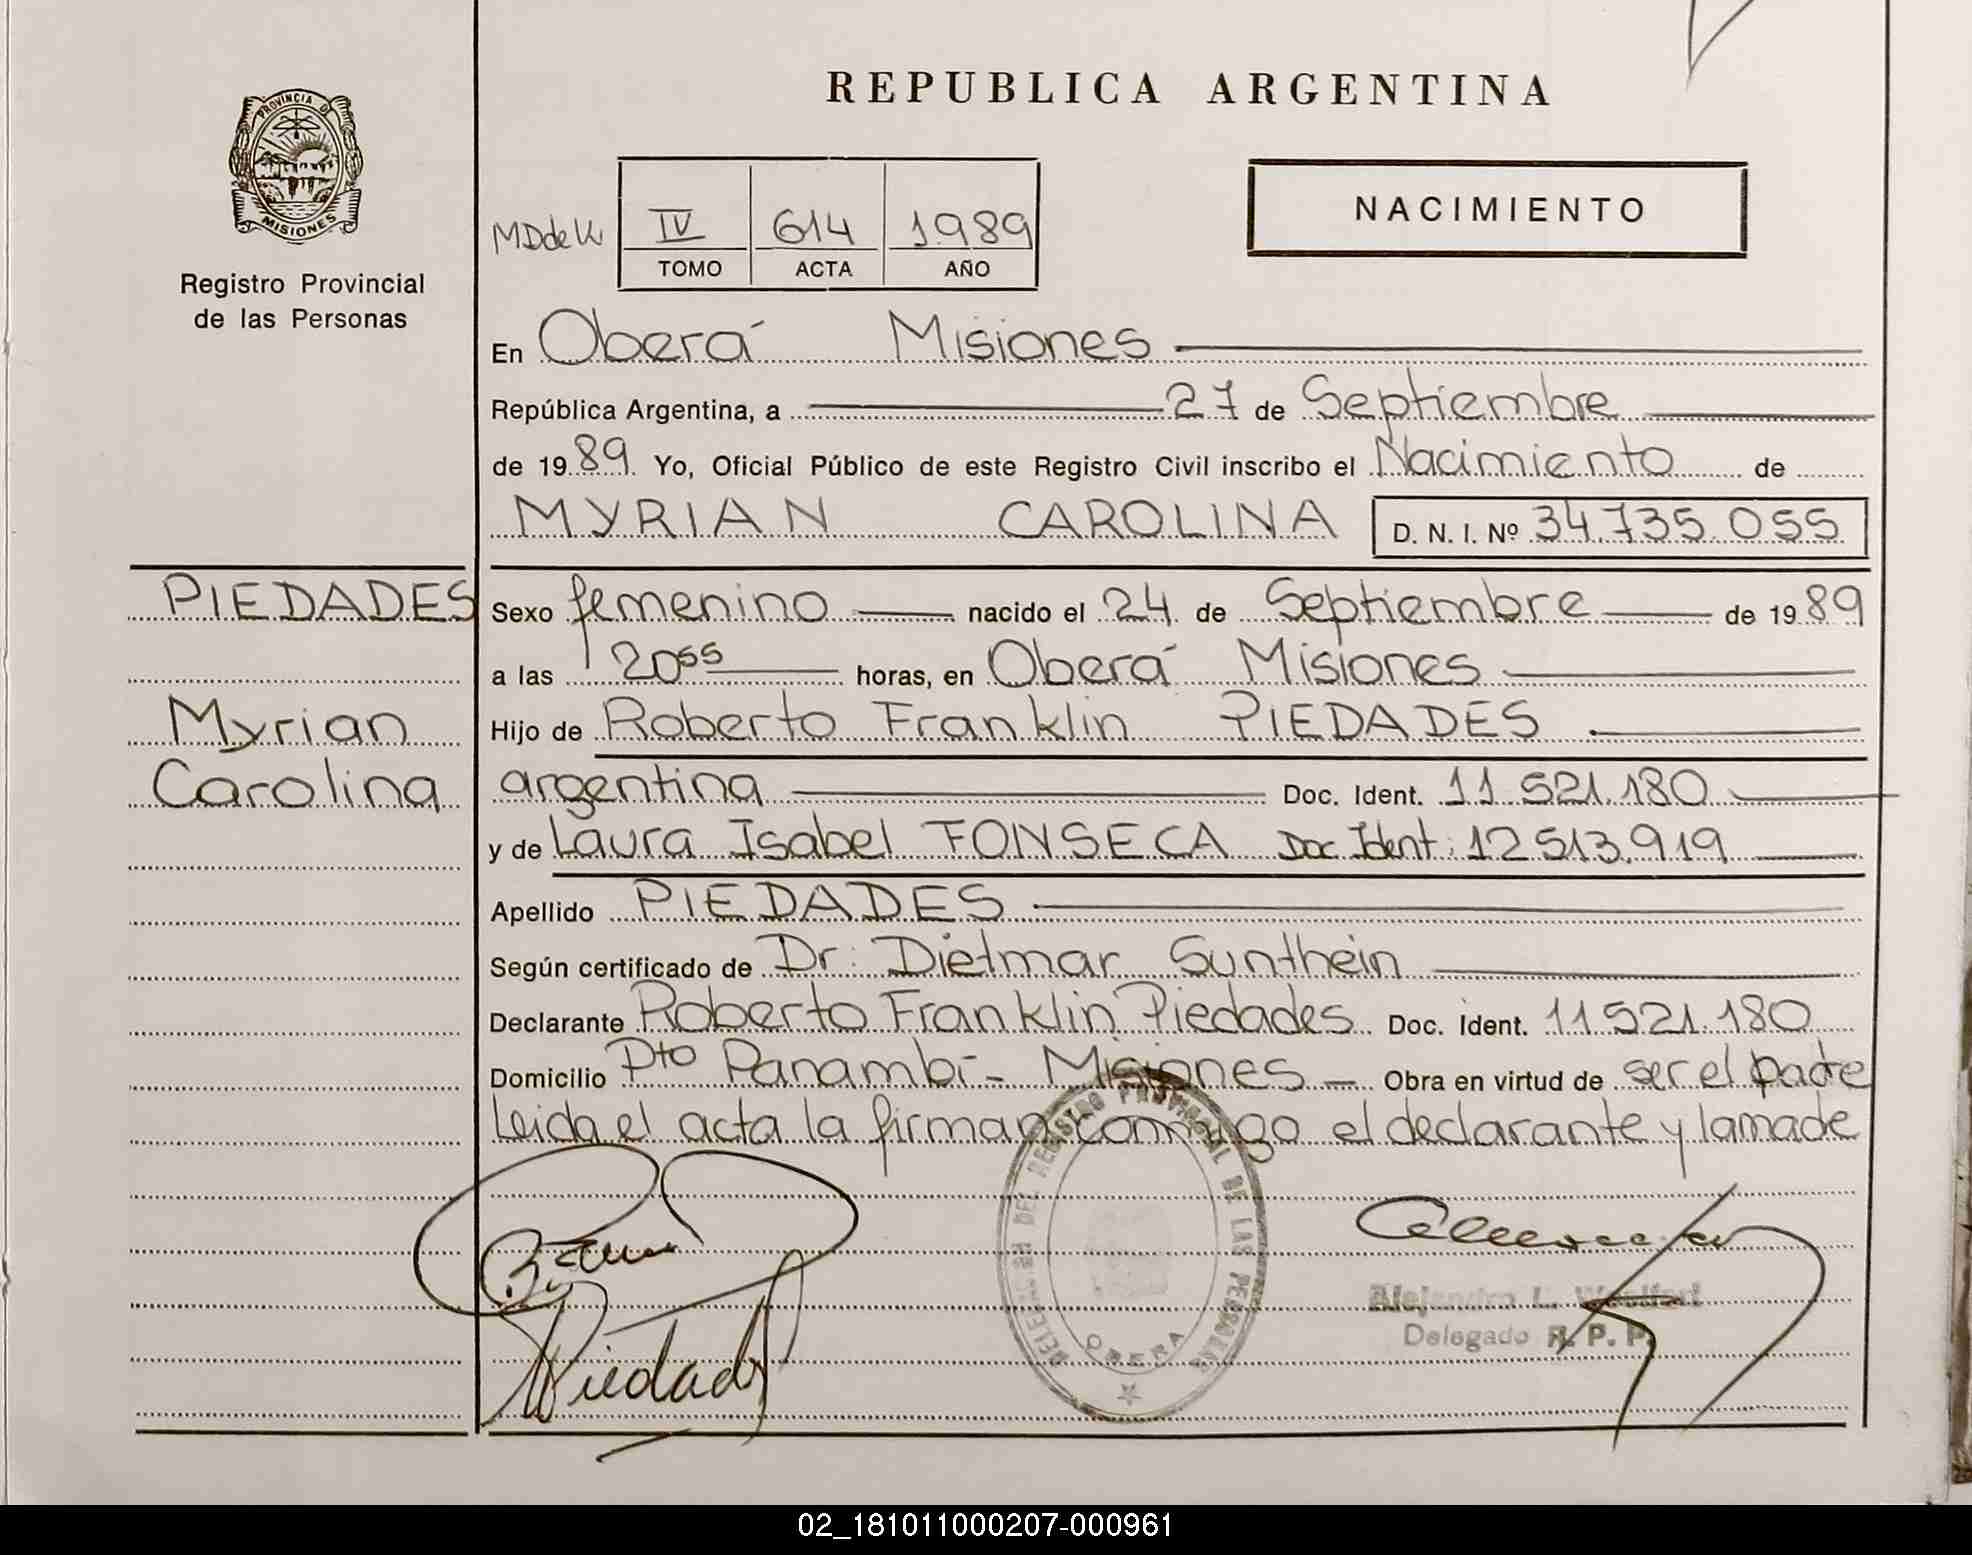 REPUBLICA ARGENTINA
PROVINCIA DE
MISIONES
Registro Provincial
de las Personas
NACIMIENTO
MDdeK IV 614 1989
TOMO ACTA AÑO
En Oberá Misiones
República Argentina, a 27 de Septiembre
de 1989. Yo, Oficial Público de este Registro Civil inscribo el Nacimiento de
MYRIAN CAROLINA D. N. I. Nº 34.735.055
PIEDADES
Myrian
Carolina
Sexo femenino nacido el 24 de Septiembre de 1989
a las 20⁵⁵ horas, en Oberá Misiones
Hijo de Roberto Franklin PIEDADES
argentina Doc. Ident. 11.521.180
y de Laura Isabel FONSECA Doc Ident: 12513.919
Apellido PIEDADES
Según certificado de Dr: Dietmar Sunthein
Declarante Roberto Franklin Piedades Doc. Ident. 11.521.180
Domicilio Pto Panambí - Misiones - Obra en virtud de ser el padre
Leida el acta la firman conmigo el declarante y la madre
Piedades
DELEGACION DEL REGISTRO PROVINCIAL DE LAS PERSONAS
OBERA
Alejandro L.
Delegado R. P. P.
02_181011000207-000961